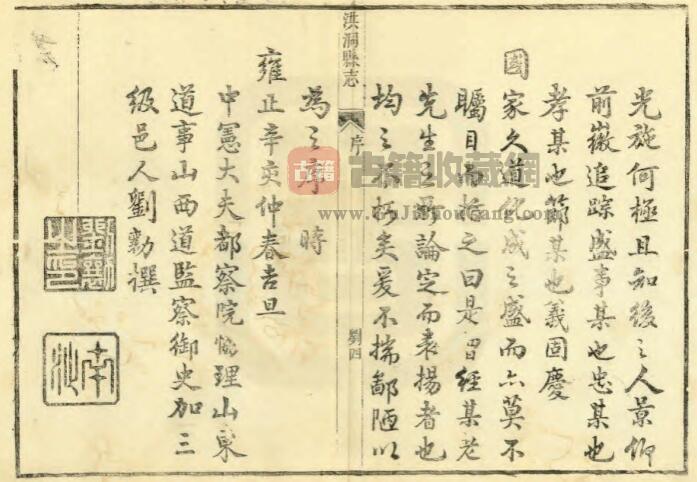 光施何極且知後之人景仰
前徽追踪盛事某也忠某也
孝某也節某也義固慶
國
家久道化成之盛而亦莫不
矚目而指之曰是曾經某老
先生之所論定而表揚者也
均之不朽矣爰不揣鄙陋以
洪洞縣志
序
劉四
為之序時
雍正辛亥仲春吉旦
中憲大夫都察院協理山東
道事山西道監察御史加三
級邑人劉勷譔
劉勷之印
古籍
古籍收藏網